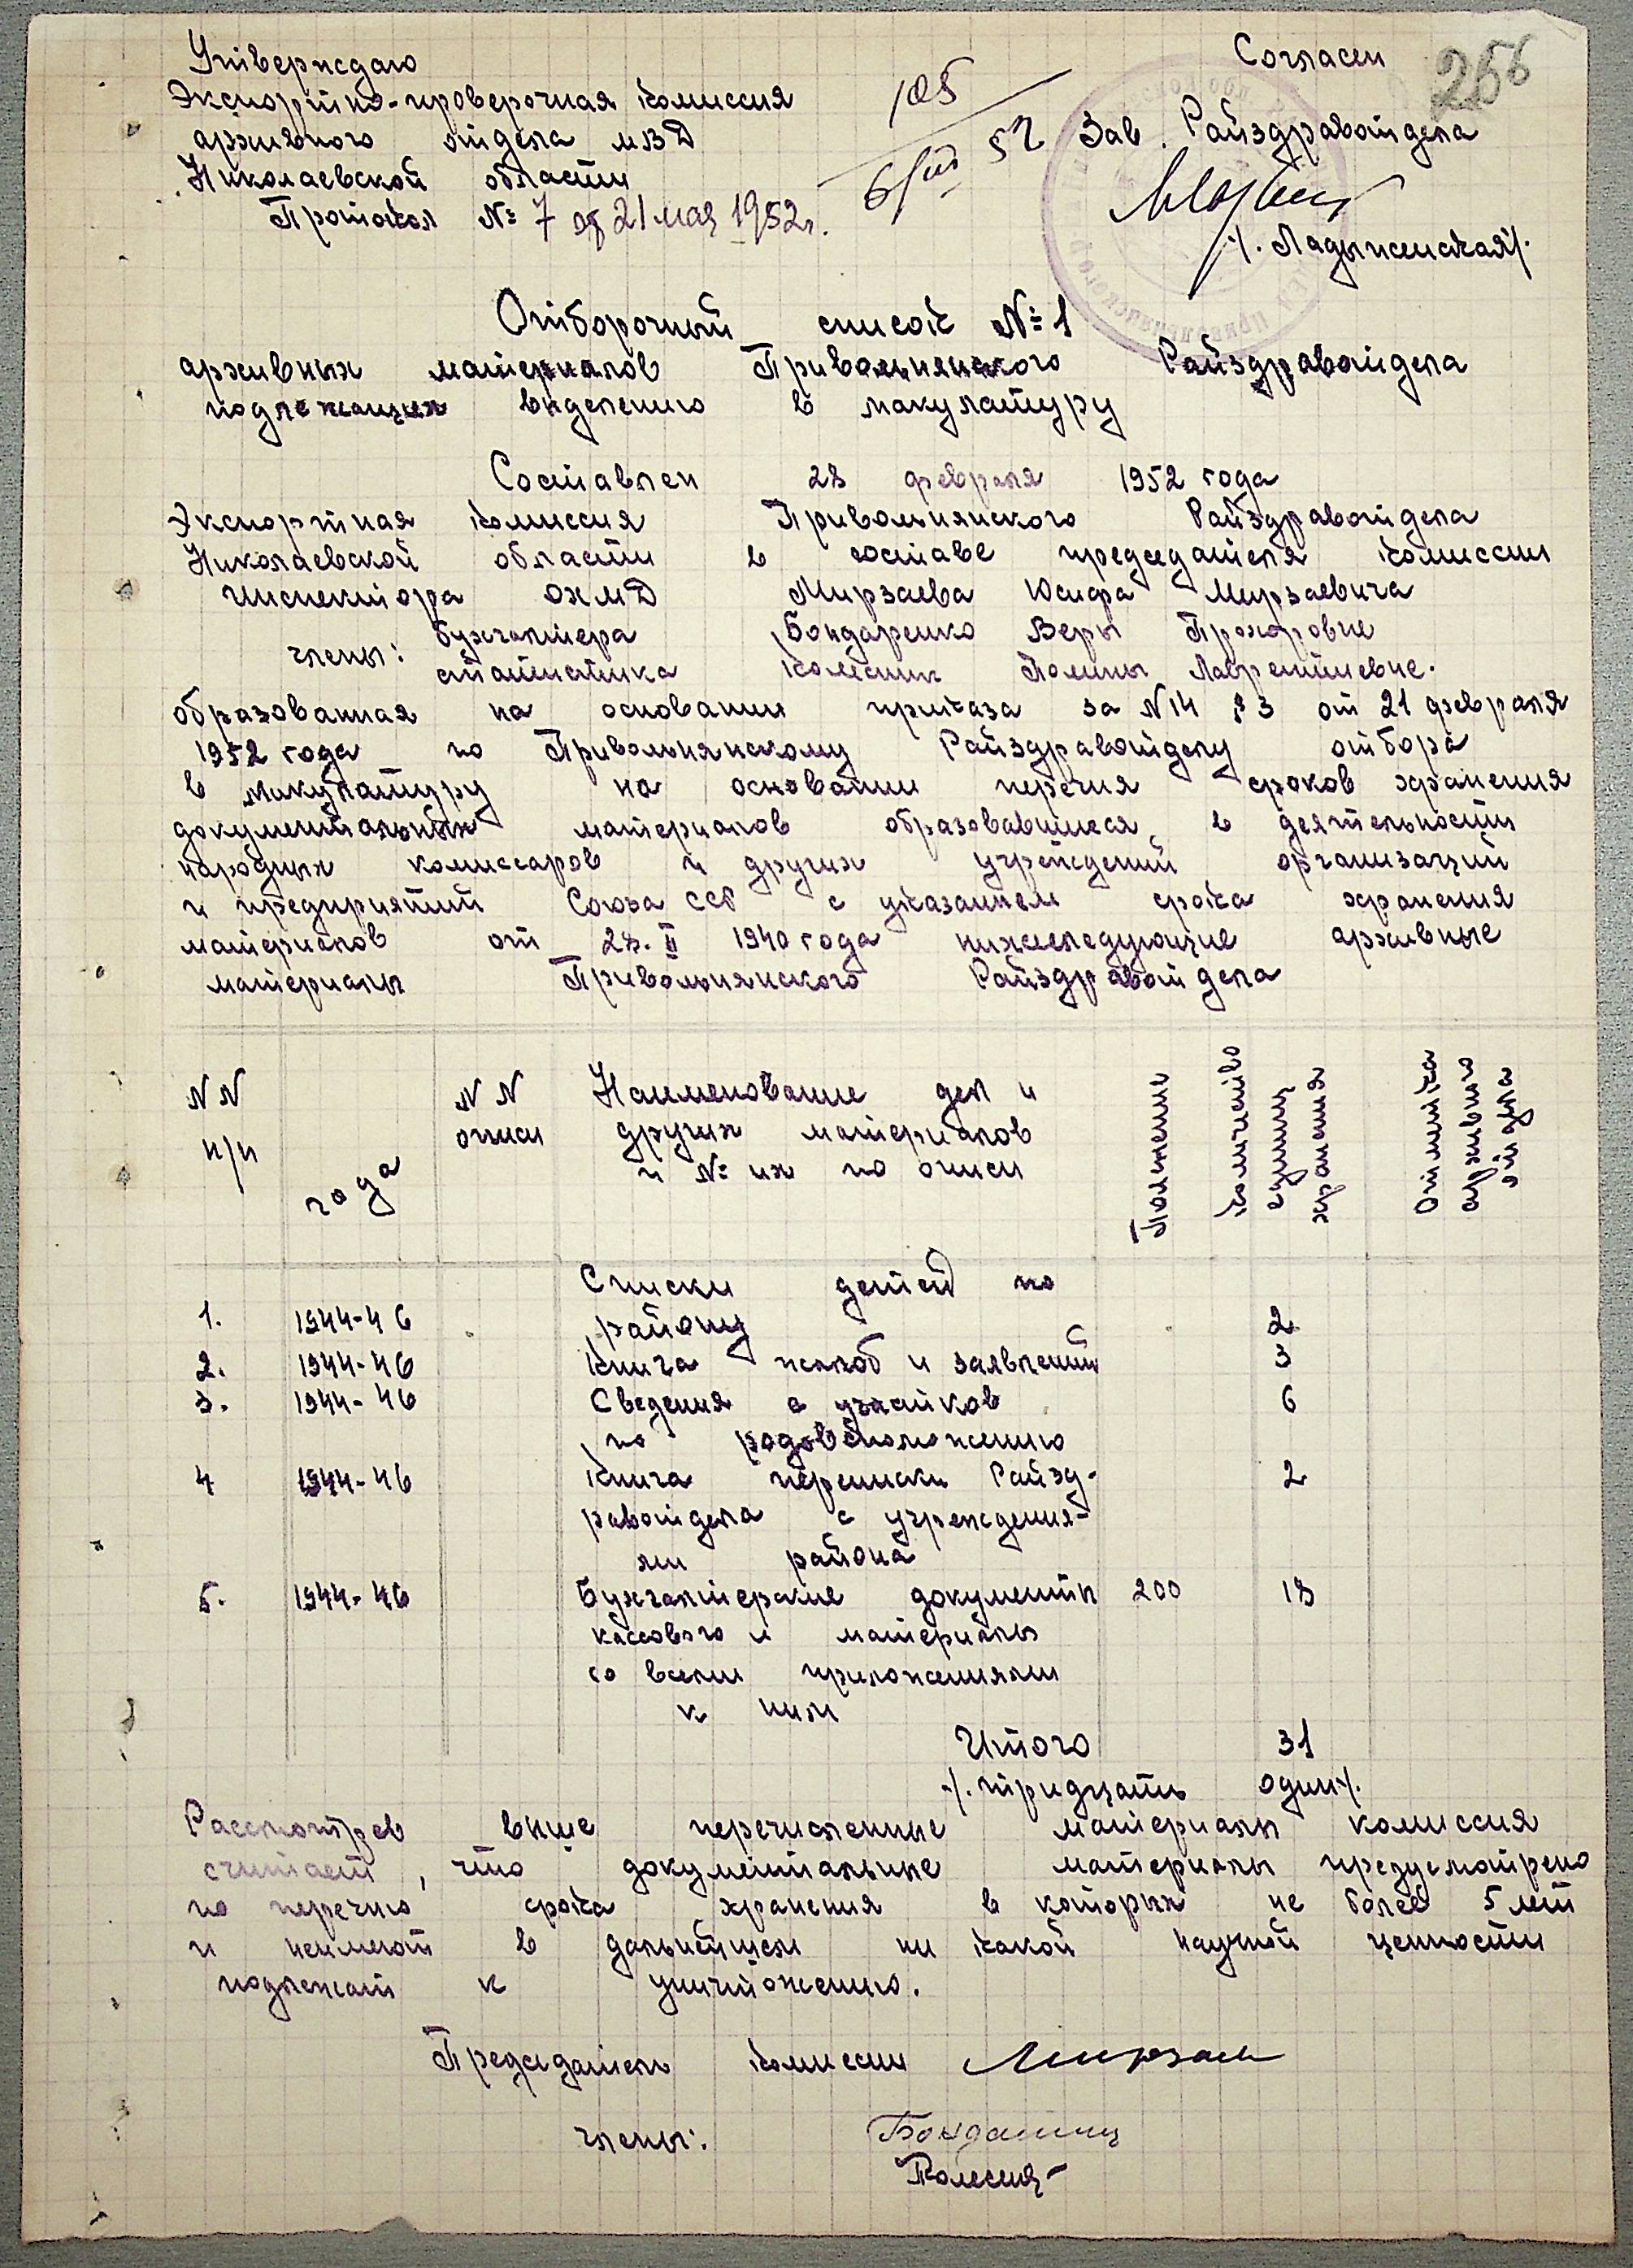 Утверждаю
Экспортно-проверочная комиссия
архивного отдела МВД
Николаевской области
Протокол № 7 от 21 мая 1952г.
105
52
Согласен
256
Зав. Райздравотдела
/. Ладыженская/.
Отборочный список № 1
архивных материалов Привольнянского Райздравотдела
подлежащих выделению в макулатуру
Составлен 28 февраля 1952 года
Экспортная комиссия Привольнянского Райздравотдела
Николаевской области в составе председателя комиссии
инспектора ОХМД Мирзаева Юсифа Мирзаевича
члены: бухгалтера Бондаренко Веры Прохоровне
статистика Колесник Полины Лаврентиевне.
образованная на основании приказа за N14 §3 от 21 февраля
1952 года по Привольнянскому Райздравотделу отбора
в макулатуру на основании перечня сроков хранения
документальных материалов образовавшиеся в деятельности
народных комиссаров и других учреждений организаций
и предприятий Союза ССР с указанием срока хранения
материалов от 28.II 1940 года нижеследующие архивные
материалы Привольнянского Райздравотдела
NN п/п года NN описи Наименование дел и других материалов и № их по описи Положение Количество единиц хранения Отметка архивного отдела
Списки детей по
1. 1944-46 району 2
2. 1944-46 Книга жалоб и заявлений 3
3. 1944-46 Сведения с участков 6
по родовспоможению
4 1944-46 Книга переписки Райзд- 2
равотдела с учреждения-
ми района
5. 1944-46 Бухгалтерские документы 200 18
кассового и материалы
со всеми приложениями
к ним
Итого 31
/. тридцать один/.
Рассмотрев выше перечисленные материалы комиссия
считает, что документальные материалы предусмотрено
по перечню срока хранения в которых не более 5 лет
и неимеют в дальнейшем ни какой научной ценности
подлежат к уничтожению.
Председатель комиссии Мирзаев
члены: